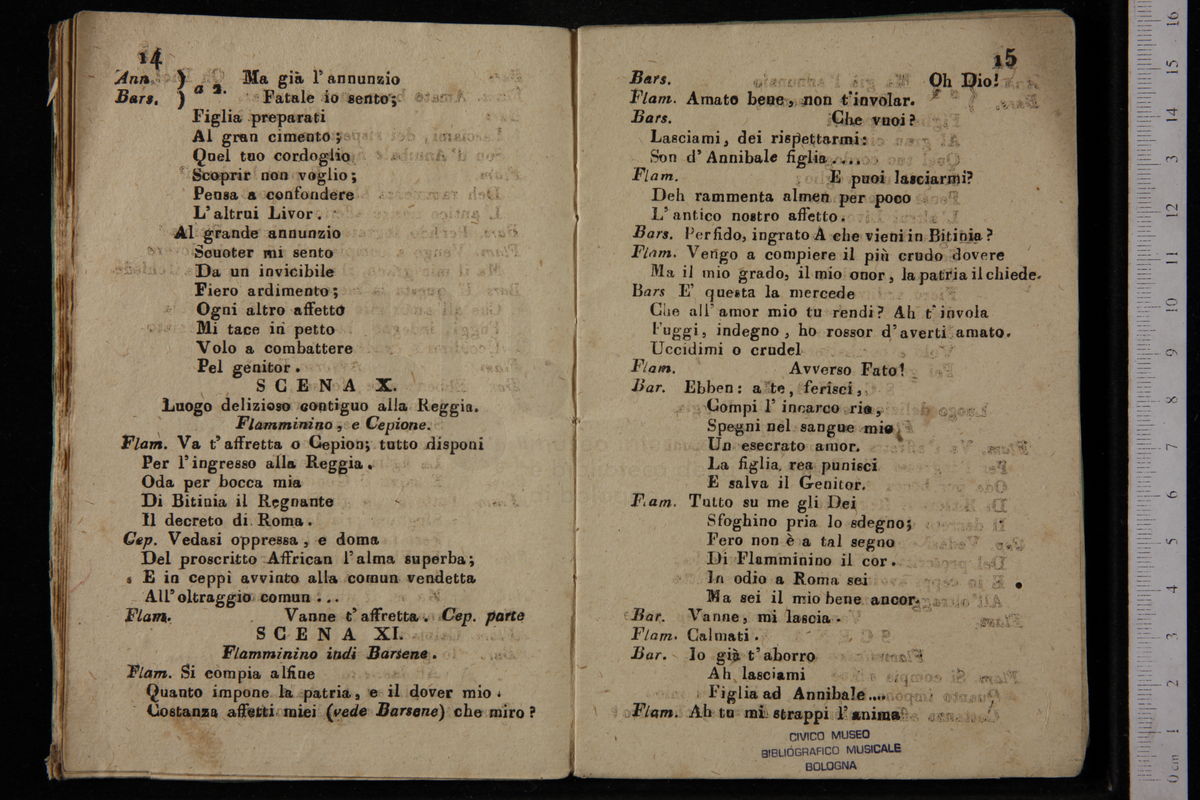 14
Ann. ) a 2. Ma già l'annunzio
Bars. ) Fatale io sento;
Figlia preparati
Al gran cimento;
Quel tuo cordoglio
Scoprir non voglio;
Pensa a confondere
L'altrui Livor.
Al grande annunzio
Scuoter mi sento
Da un invicibile
Fiero ardimento;
Ogni altro affetto
Mi tace in petto
Volo a combattere
Pel genitor.
SCENA X.
Luogo delizioso contiguo alla Reggia.
Flamminino, e Cepione.
Flam. Va t'affretta o Cepion; tutto disponi
Per l'ingresso alla Reggia.
Oda per bocca mia
Di Bitinia il Regnante
Il decreto di Roma.
Cep. Vedasi oppressa, e doma
Del proscritto Affrican l'alma superba;
E in ceppi avvinto alla comun vendetta
All'oltraggio comun ...
Flam. Vanne t'affretta. Cep. parte
SCENA XI.
Flamminino indi Barsene.
Flam. Si compia alfine
Quanto impone la patria, e il dover mio.
Costanza affetti miei (vede Barsene) che miro?
15
Bars. Oh Dio!
Flam. Amato bene, non t'involar.
Bars. Che vuoi?
Lasciami, dei rispettarmi:
Son d'Annibale figlia....
Flam. E puoi lasciarmi?
Deh rammenta almen per poco
L'antico nostro affetto.
Bars. Perfido, ingrato A che vieni in Bitinia?
Flam. Vengo a compiere il più crudo dovere
Ma il mio grado, il mio onor, la patria il chiede.
Bars E' questa la mercede
Che all'amor mio tu rendi? Ah t'invola
Fuggi, indegno, ho rossor d'averti amato.
Uccidimi o crudel
Flam. Avverso Fato!
Bar. Ebben: a te, ferisci,
Compi l'incarco rio,
Spegni nel sangue mio
Un esecrato amor.
La figlia rea punisci
E salva il Genitor.
Flam. Tutto su me gli Dei
Sfoghino pria lo sdegno;
Fero non è a tal segno
Di Flamminino il cor.
In odio a Roma sei
Ma sei il mio bene ancor.
Bar. Vanne, mi lascia.
Flam. Calmati.
Bar. Io già t'aborro
Ah lasciami
Figlia ad Annibale....
Flam. Ah tu mi strappi l'anima
CIVICO MUSEO
BIBLIOGRAFICO MUSICALE
BOLOGNA
0 cm 1 2 3 4 5 6 7 8 9 10 11 12 13 14 15 16